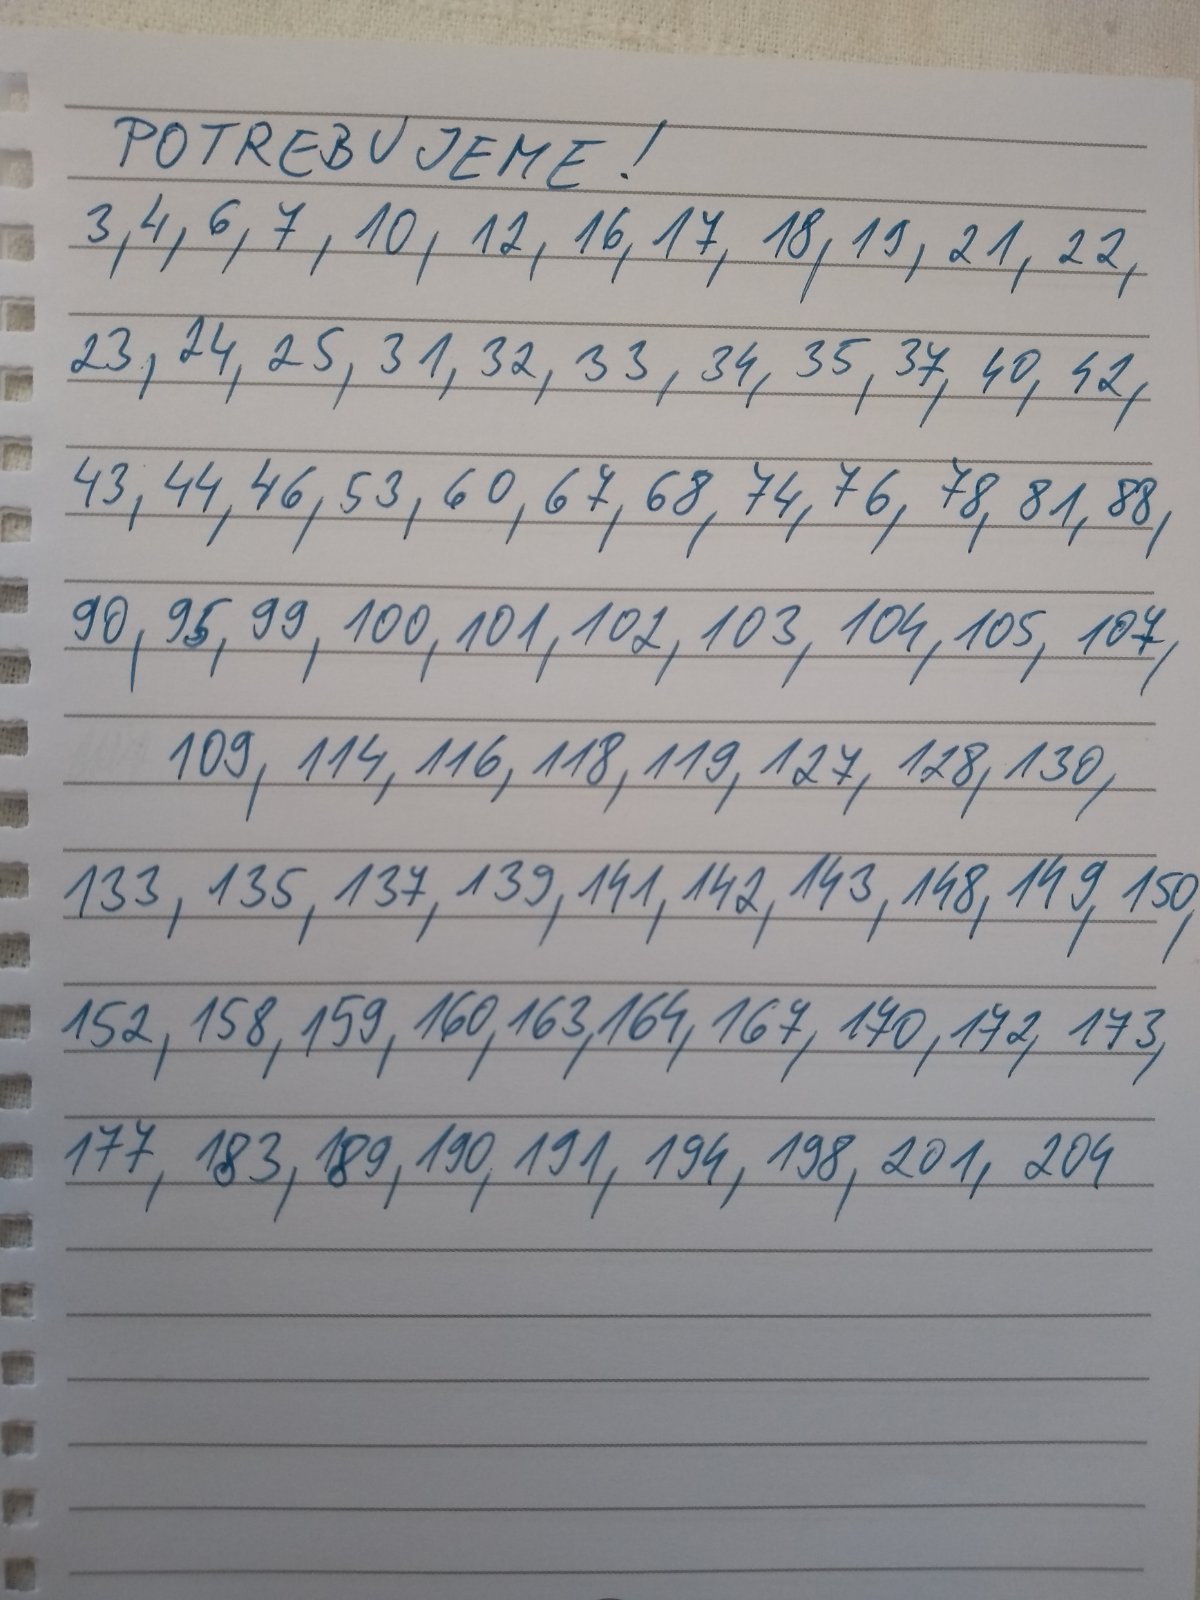 POTREBUJEME!
3, 4, 6, 7, 10, 12, 16, 17, 18, 19, 21, 22,
23, 24, 25, 31, 32, 33, 34, 35, 37, 40, 42,
43, 44, 46, 53, 60, 67, 68, 74, 76, 78, 81, 88,
90, 95, 99, 100, 101, 102, 103, 104, 105, 107,
109, 114, 116, 118, 119, 127, 128, 130,
133, 135, 137, 139, 141, 142, 143, 148, 149, 150,
152, 158, 159, 160, 163, 164, 167, 170, 172, 173,
177, 183, 189, 190, 191, 194, 198, 201, 204